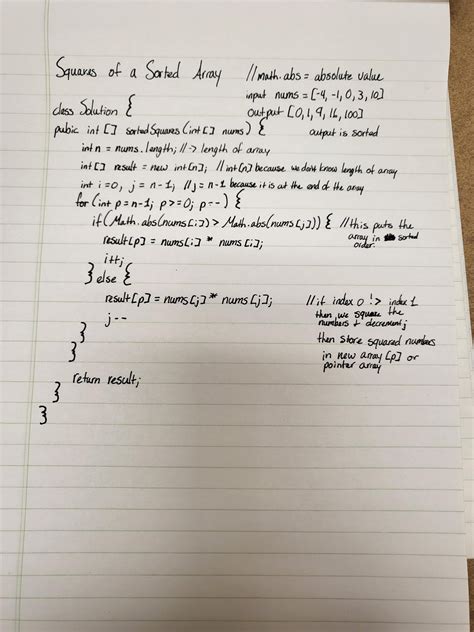 Squares of a Sorted Array //math.abs = absolute value
input nums = [-4, -1, 0, 3, 10]
class Solution { output [0, 1, 9, 16, 100]
pubic int [] sortedSquares (int [] nums) { output is sorted
int n = nums.length; //-> length of array
int [] result = new int [n]; //int [n] because we dont know length of array
int i = 0, j = n-1; //j = n-1 because it is at the end of the array
for (int p = n-1; p >= 0; p--) {
if (Math.abs(nums[i]) > Math.abs(nums[j])) { //this puts the
array in sorted
order.
result[p] = nums[i] * nums[i];
i++;
} else {
result[p] = nums[j] * nums[j]; //if index 0 !> index 1
then we square the
j-- numbers & decrement j
} then store squared numbers
} in new array [p] or
pointer array
return result;
}
}